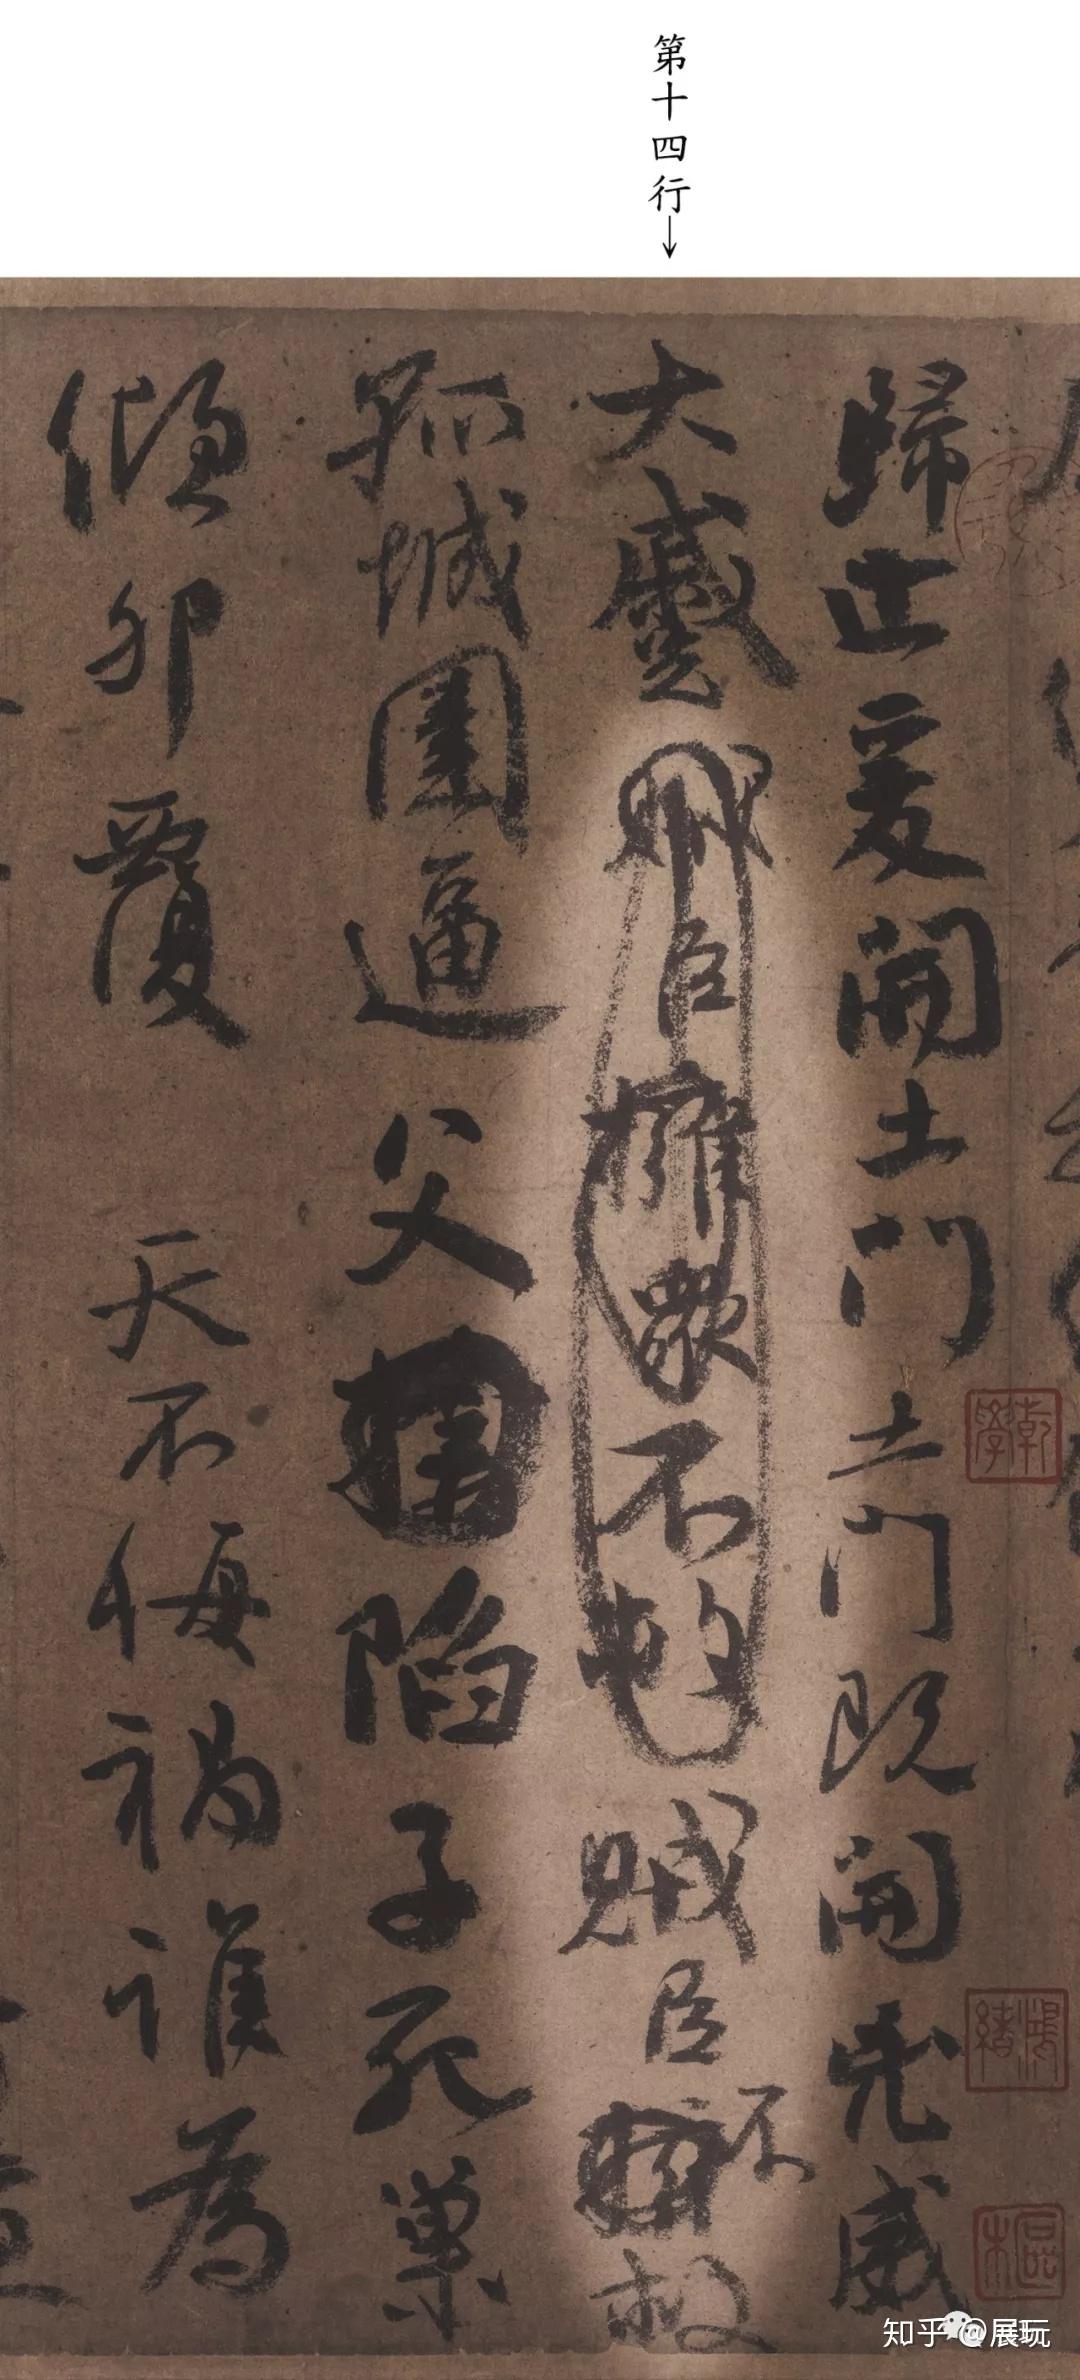 第十四行↓
歸止爰開土門土門既開兇威
大蹙賊臣擁眾不救賊臣不救
孤城圍逼父陷子死巢
傾卵覆 天不悔禍誰為
乾學
知乎 @展玩